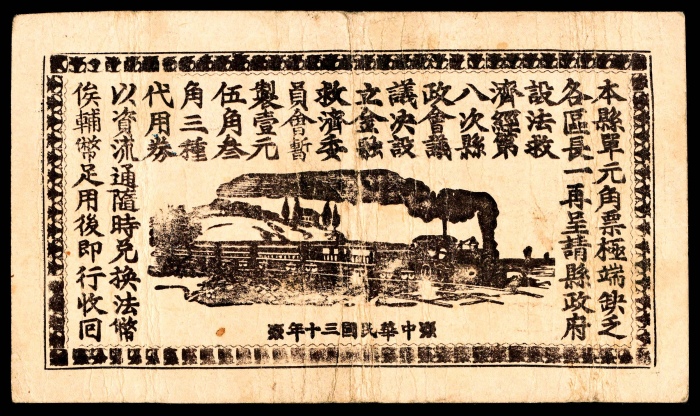 本縣單元角票極端缺乏
各區長一再呈請縣政府
設法救
濟經第
八次縣
政會議
議決設
立金融
救濟委
員會暫
製壹元
伍角叁
角三種
代用券
以資流通隨時兑換法幣
俟輔幣足用後即行收回
中華民國三十年